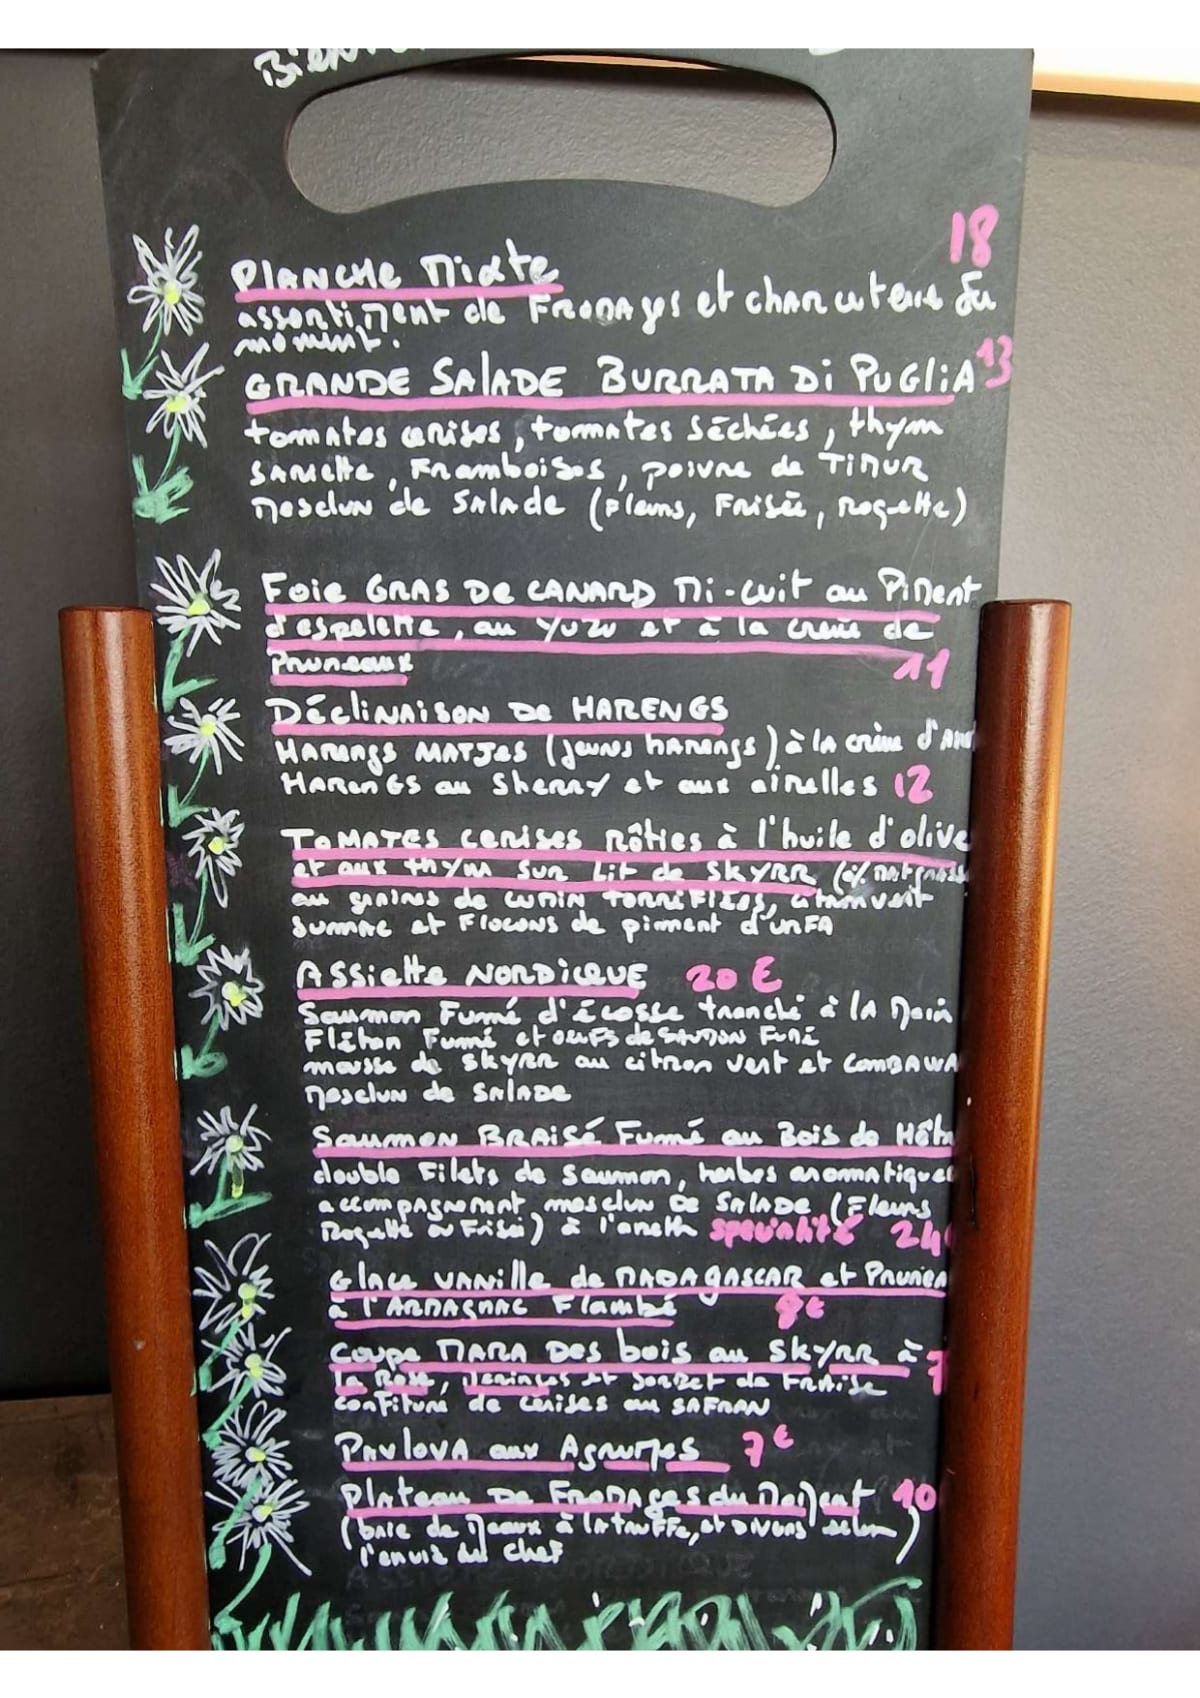 18
PLANCHE Mixte
assortiment de FROMAGES et charcuterie du
moment.
GRANDE SALADE BURRATA Di PUGLiA 13
tomates cerises, tomates séchées, thym
SARiette, FRamboises, poivre de TIMUR
Mesclun de SALADE (Fleurs, Frisée, Roquette)
Foie GRAS De CANARD Mi-cuit au Piment
d'espelette, au Yuzu et à la crème de
Pruneaux 11
DÉCliNAiSON De HARENGS
HARengs MATJes (jeunes hARengs) à lA crème d'Anet
HARenGS au Sherry et aux airelles 12
TOMATES cerises Rôties à l'huile d'olive
et aux thym sur Lit de SKYRR (0%
au graines de cumin torréfiées, citron vert
Sumac et Flocons de piment d'URFA
ASSiette NORDiQUE 20 €
Saumon Fumé d'écosse tranché à lA Main
Flétan Fumé et oeufs de SAUMON Fumé
mousse de skyrr au citron vert et COMBAWA
Mesclun de SALADE
Saumon BRAiSé Fumé au Bois de Hêtr
double Filets de saumon, herbes aromatiques
accompagnement mesclun De SALADE (Fleurs
Roquette ou Frisée) à l'aneth spécialité 24€
Glace VANille de MADAGASCAR et Prunea
à l'ARMAGNAC Flambé 8€
Coupe MARA Des bois au SKYRR à 7
la Rose, Meringues et sorbet de FRAise
confiture de Cerises au SAFRAN
PAVLOVA aux Agrumes 7€
Plateau De FROMAGES du Moment 10
(brie de Meaux à lA truffe, et divers selon)
l'envie du chef